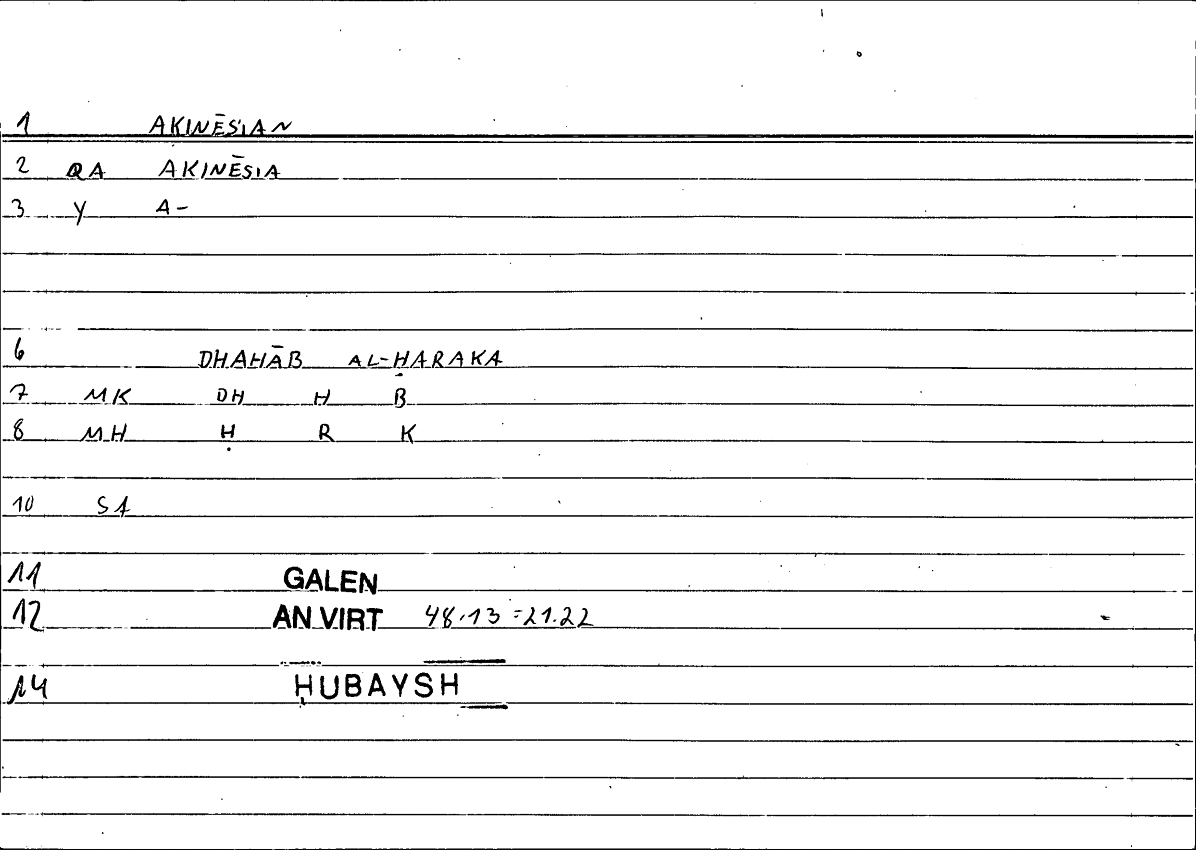 1 AKINĒSIAN
2 QA AKINĒSIA
3 Y A-
6 DHAHĀB AL-ḤARAKA
7 MK DH H B
8 MH Ḥ R K
10 SA
11 GALEN
12 AN VIRT 48.13 = 21.22
14 ḤUBAYSH